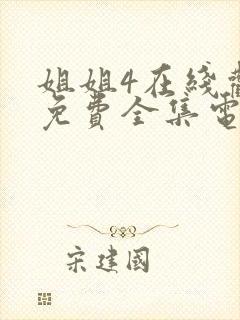 姐姐4在綫觀
免費全集電
宋建國